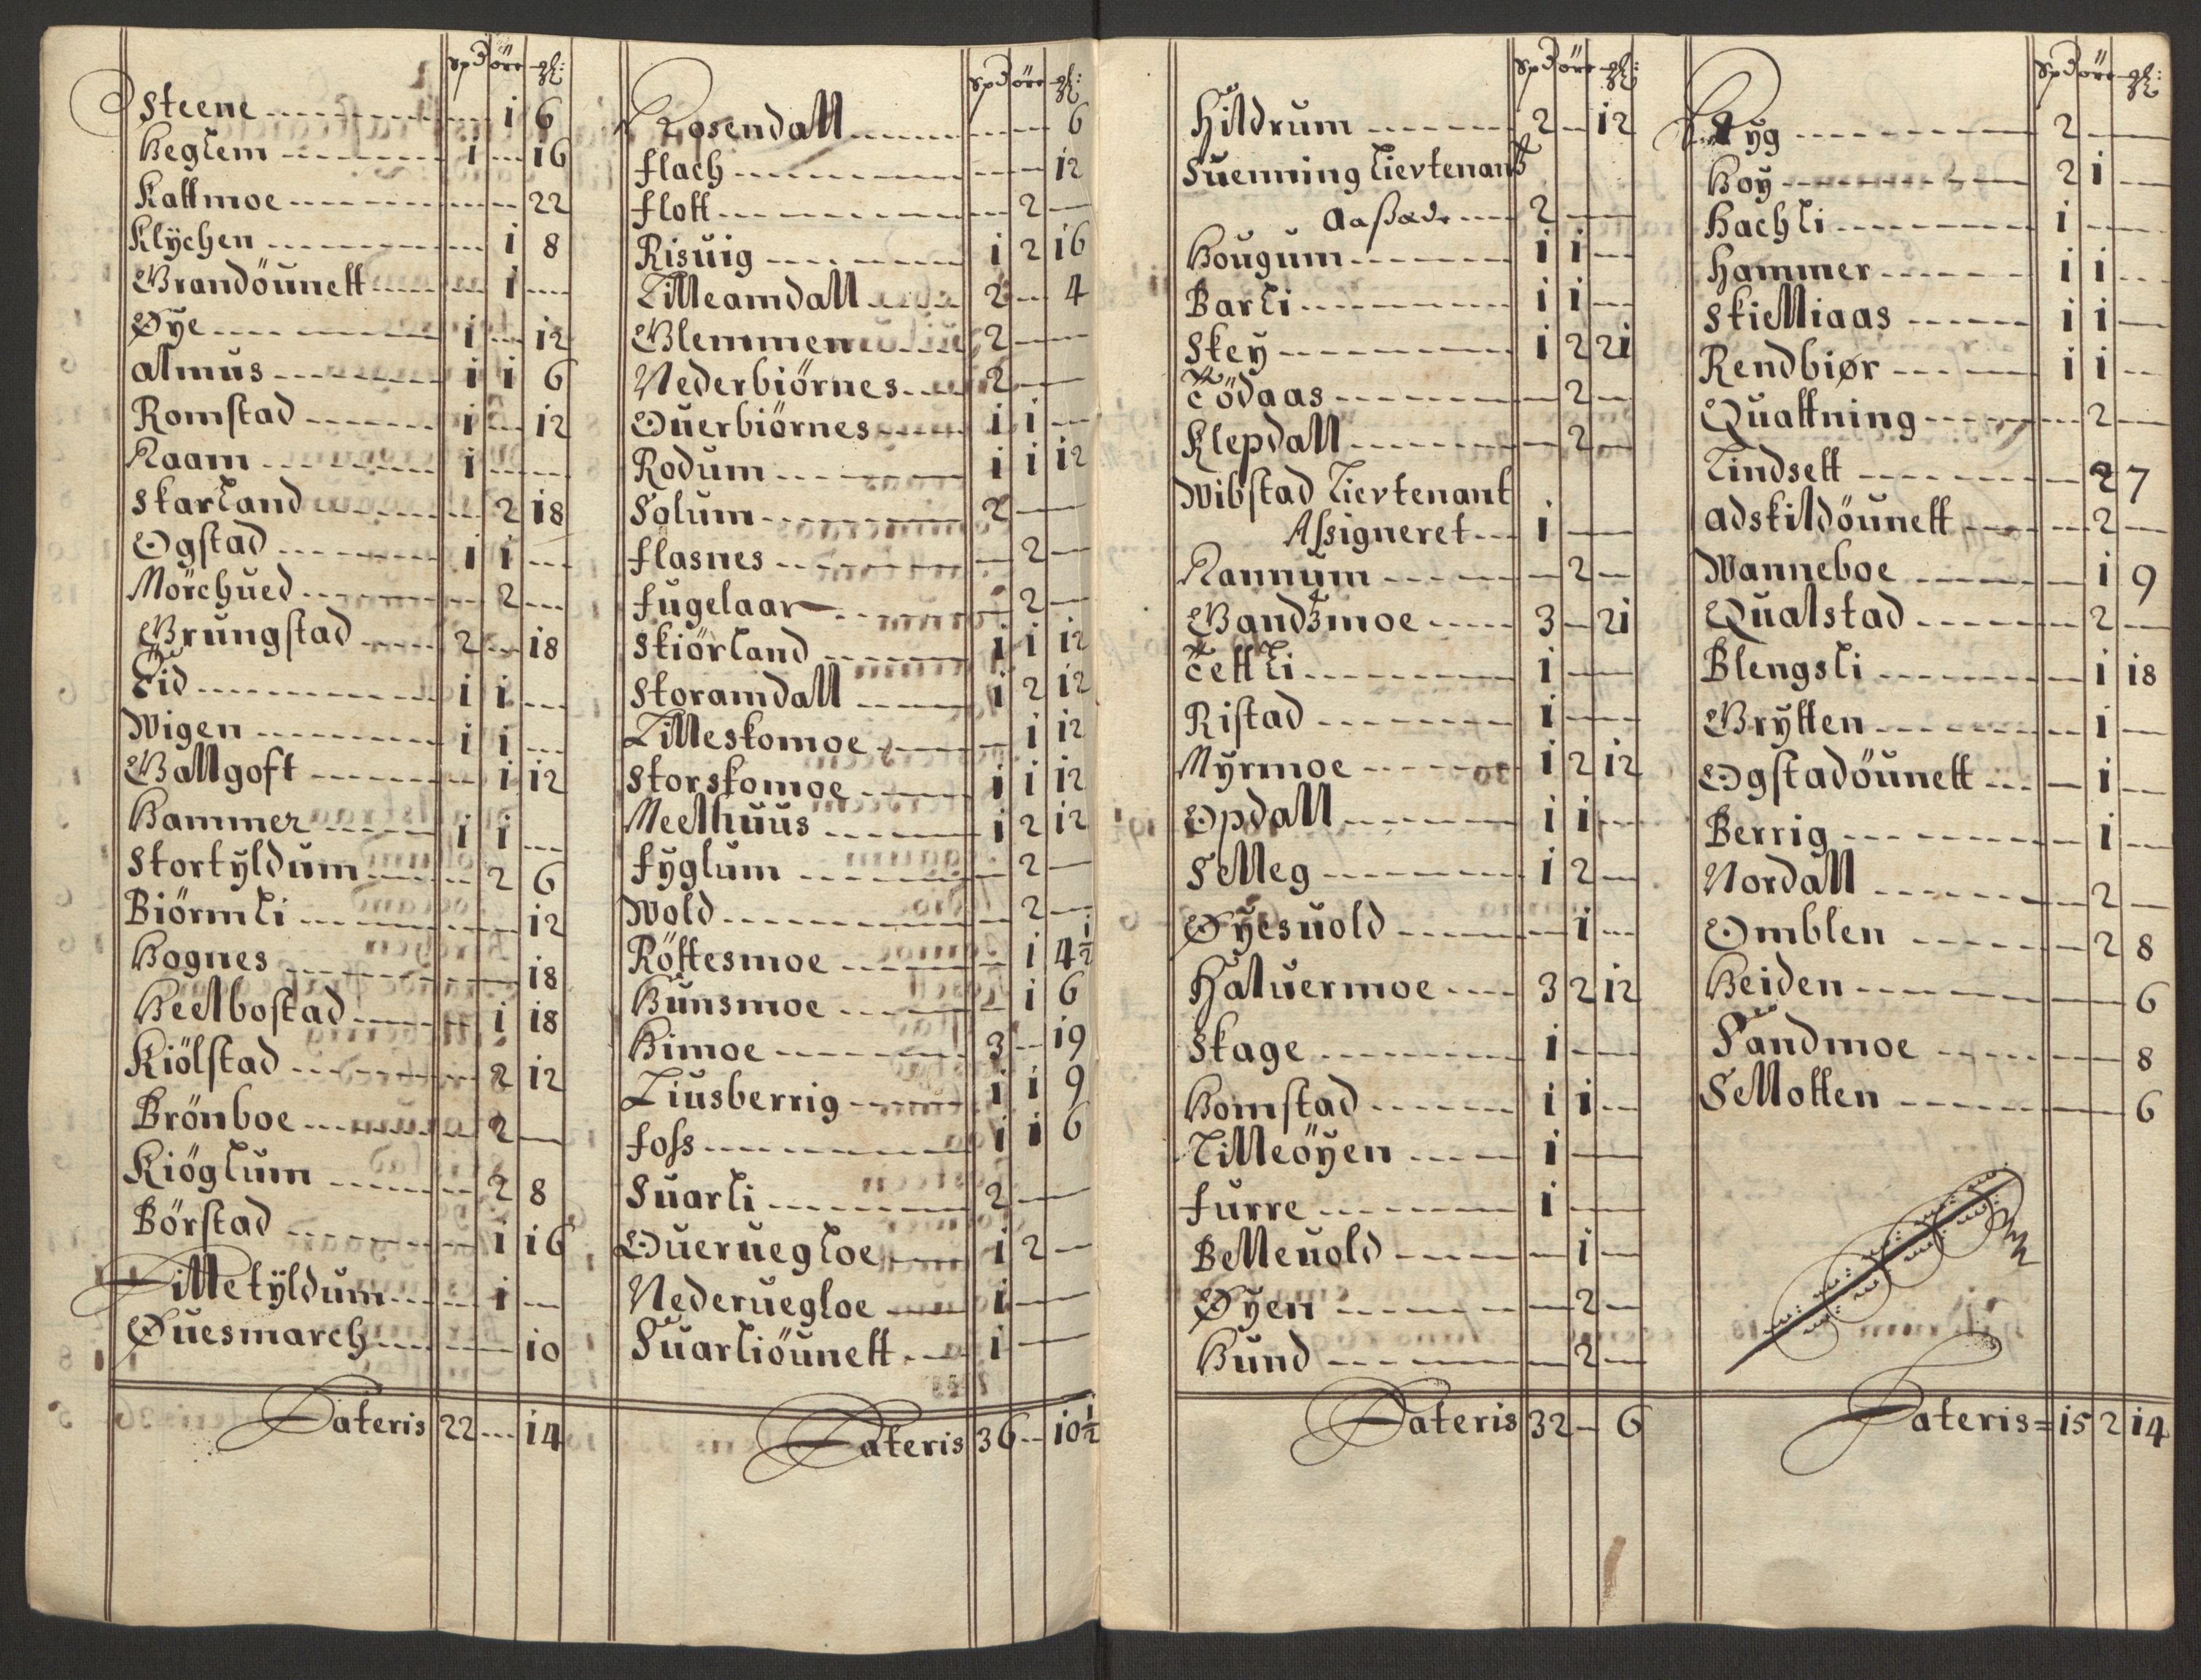 Spd öre ₰:
Steene ---- 1 6
Heglem ---- 1 -- 16
Kattmoe ---- 22
Klÿchen ---- 1 8
Grandöunett ---- 1 --
Øÿe ---- 1 -- 12
Almus ---- 1 1 6
Romstad ---- 1 -- 12
Raam ---- 1 --
Skarland ---- 2 18
Ogstad ---- 1 1 --
Mörchued ---- 2 --
Grungstad ---- 2 -- 18
Eid ---- 1 1 --
Wigen ---- 1 1 --
Gallgoft ---- 1 12
Hammer ---- 1 1 --
Stortÿldum ---- 2 6
Biörmli ---- 12
Hognes ---- 18
Heelbostad ---- 1 18
Kiölstad ---- 2 12
Brönboe ---- 2 --
Kiöglum ---- 2 8
Börstad ---- 1 16
Lilletÿldum ---- 1 --
Øuesmarch ---- 10
Lateris 22 -- 14
Spd öre ₰:
Rosendall ---- 6
Flach ---- 12
Flott ---- 2 --
Risuig ---- 1 2 16
Lilleamdall ---- 2 -- 4
Glemmen ---- 2 --
Nederbiörnes ---- 2 --
Ouerbiörnes ---- 1 1 --
Rodum ---- 1 1 12
Solum ---- 2 --
Flasnes ---- 2 --
Fugelaar ---- 2 --
Skiörland ---- 1 1 12
Storamdall ---- 1 2 12
Lilleskomoe ---- 1 12
Storskomoe ---- 1 1 12
Meelhuus ---- 1 2 12
Fÿglum ---- 2 --
Wold ---- 2 --
Röttesmoe ---- 1 4½
Hunsmoe ---- 1 6
Himoe ---- 3 -- 19
Liusberrig ---- 1 1 9
Foss ---- 1 1 6
Suarli ---- 2 --
Oueruegloe ---- 1 2 --
Nederuegloe ---- 1 --
Suarliöunett ---- 1 --
Lateris 36 -- 10½
Spd öre ₰:
Hildrum ---- 2 -- 12
Suenning Lievtenant
Aasæde ---- 2 --
Hougum ---- 1 1 --
Barli ---- 1 1 --
Skeÿ ---- 1 2 21
Tödaas ---- 2 --
Klepdall ---- 2 --
Wibstad Lievtenant
Assigneret -- 1 --
Rannum ---- 2 --
Gandzmoe ---- 3 -- 21
Tettli ---- 1 --
Ristad ---- 1 --
Mÿrmoe ---- 1 2 12
Opdall ---- 1 1 --
Selleg ---- 1 2 --
Øÿesuold ---- 1 --
Haluermoe ---- 3 2 12
Skage ---- 1 --
Homstad ---- 1 1 --
Lilleöÿen ---- 1 --
Furre ---- 1 --
Belleuold ---- 1 --
Øÿen ---- 2 --
Hund ---- 2 --
Lateris 32 -- 6
Spd öre ₰:
Rÿg ---- 2 --
Hoÿ ---- 2 1 --
Hachli ---- 1 --
Hammer ---- 1 1 --
Skielliaas ---- 1 1 --
Rendbiør ---- 1 1 --
Quattning ---- 2 --
Lindsett ---- 2 7
Adskildöunett ---- 2 --
Wanneboe ---- 1 9
Qualstad ---- 2 --
Blengsli ---- 1 18
Grÿtten ---- 1 --
Ogstadöunett ---- 1 --
Berrig ---- 1 --
Nordall ---- 2 --
Omblen ---- 2 8
Heiden ---- 6
Sandmoe ---- 8
Sellotten ---- 6
Lateris = 15 2 14